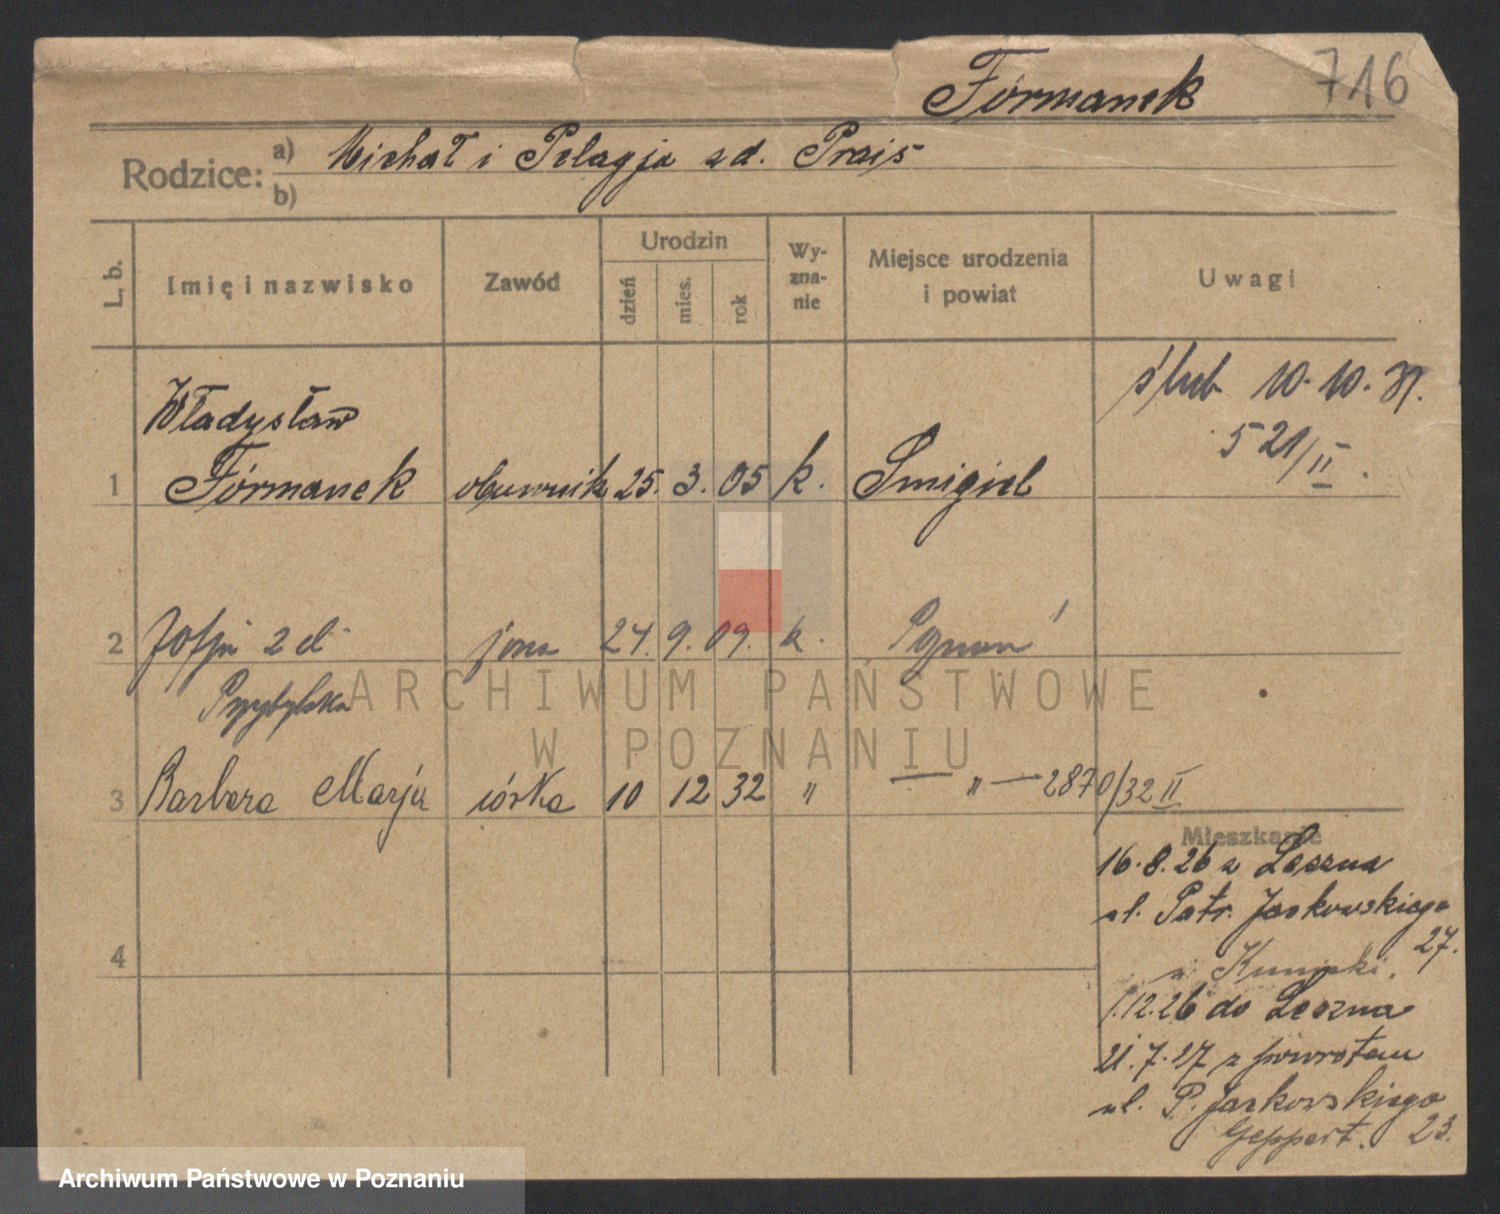 Formanek 716
Rodzice: a) Michał i Pelagja zd. Prais
b)
L. b. Imię i nazwisko Zawód Urodzin dzień mies. rok Wyznanie Miejsce urodzenia i powiat Uwagi
ślub 10.10.31.
521/II.
Władysław
1 Formanek obuwnik 25. 3. 05 k. Śmigiel
2 Zofja zd żona 27. 9. 09. k. Poznań
Przybylska
3 Barbara Marja córka 10 12 32 " — " — 2870/32 II
Mieszkanie
16.8.26 z Leszna
ul. Patr. Jackowskiego
27.
4
1.12.26 do Leszna
21.7.27 z powrotem
ul. P. Jackowskiego
Geppert. 23.
ARCHIWUM PAŃSTWOWE
W POZNANIU
Archiwum Państwowe w Poznaniu